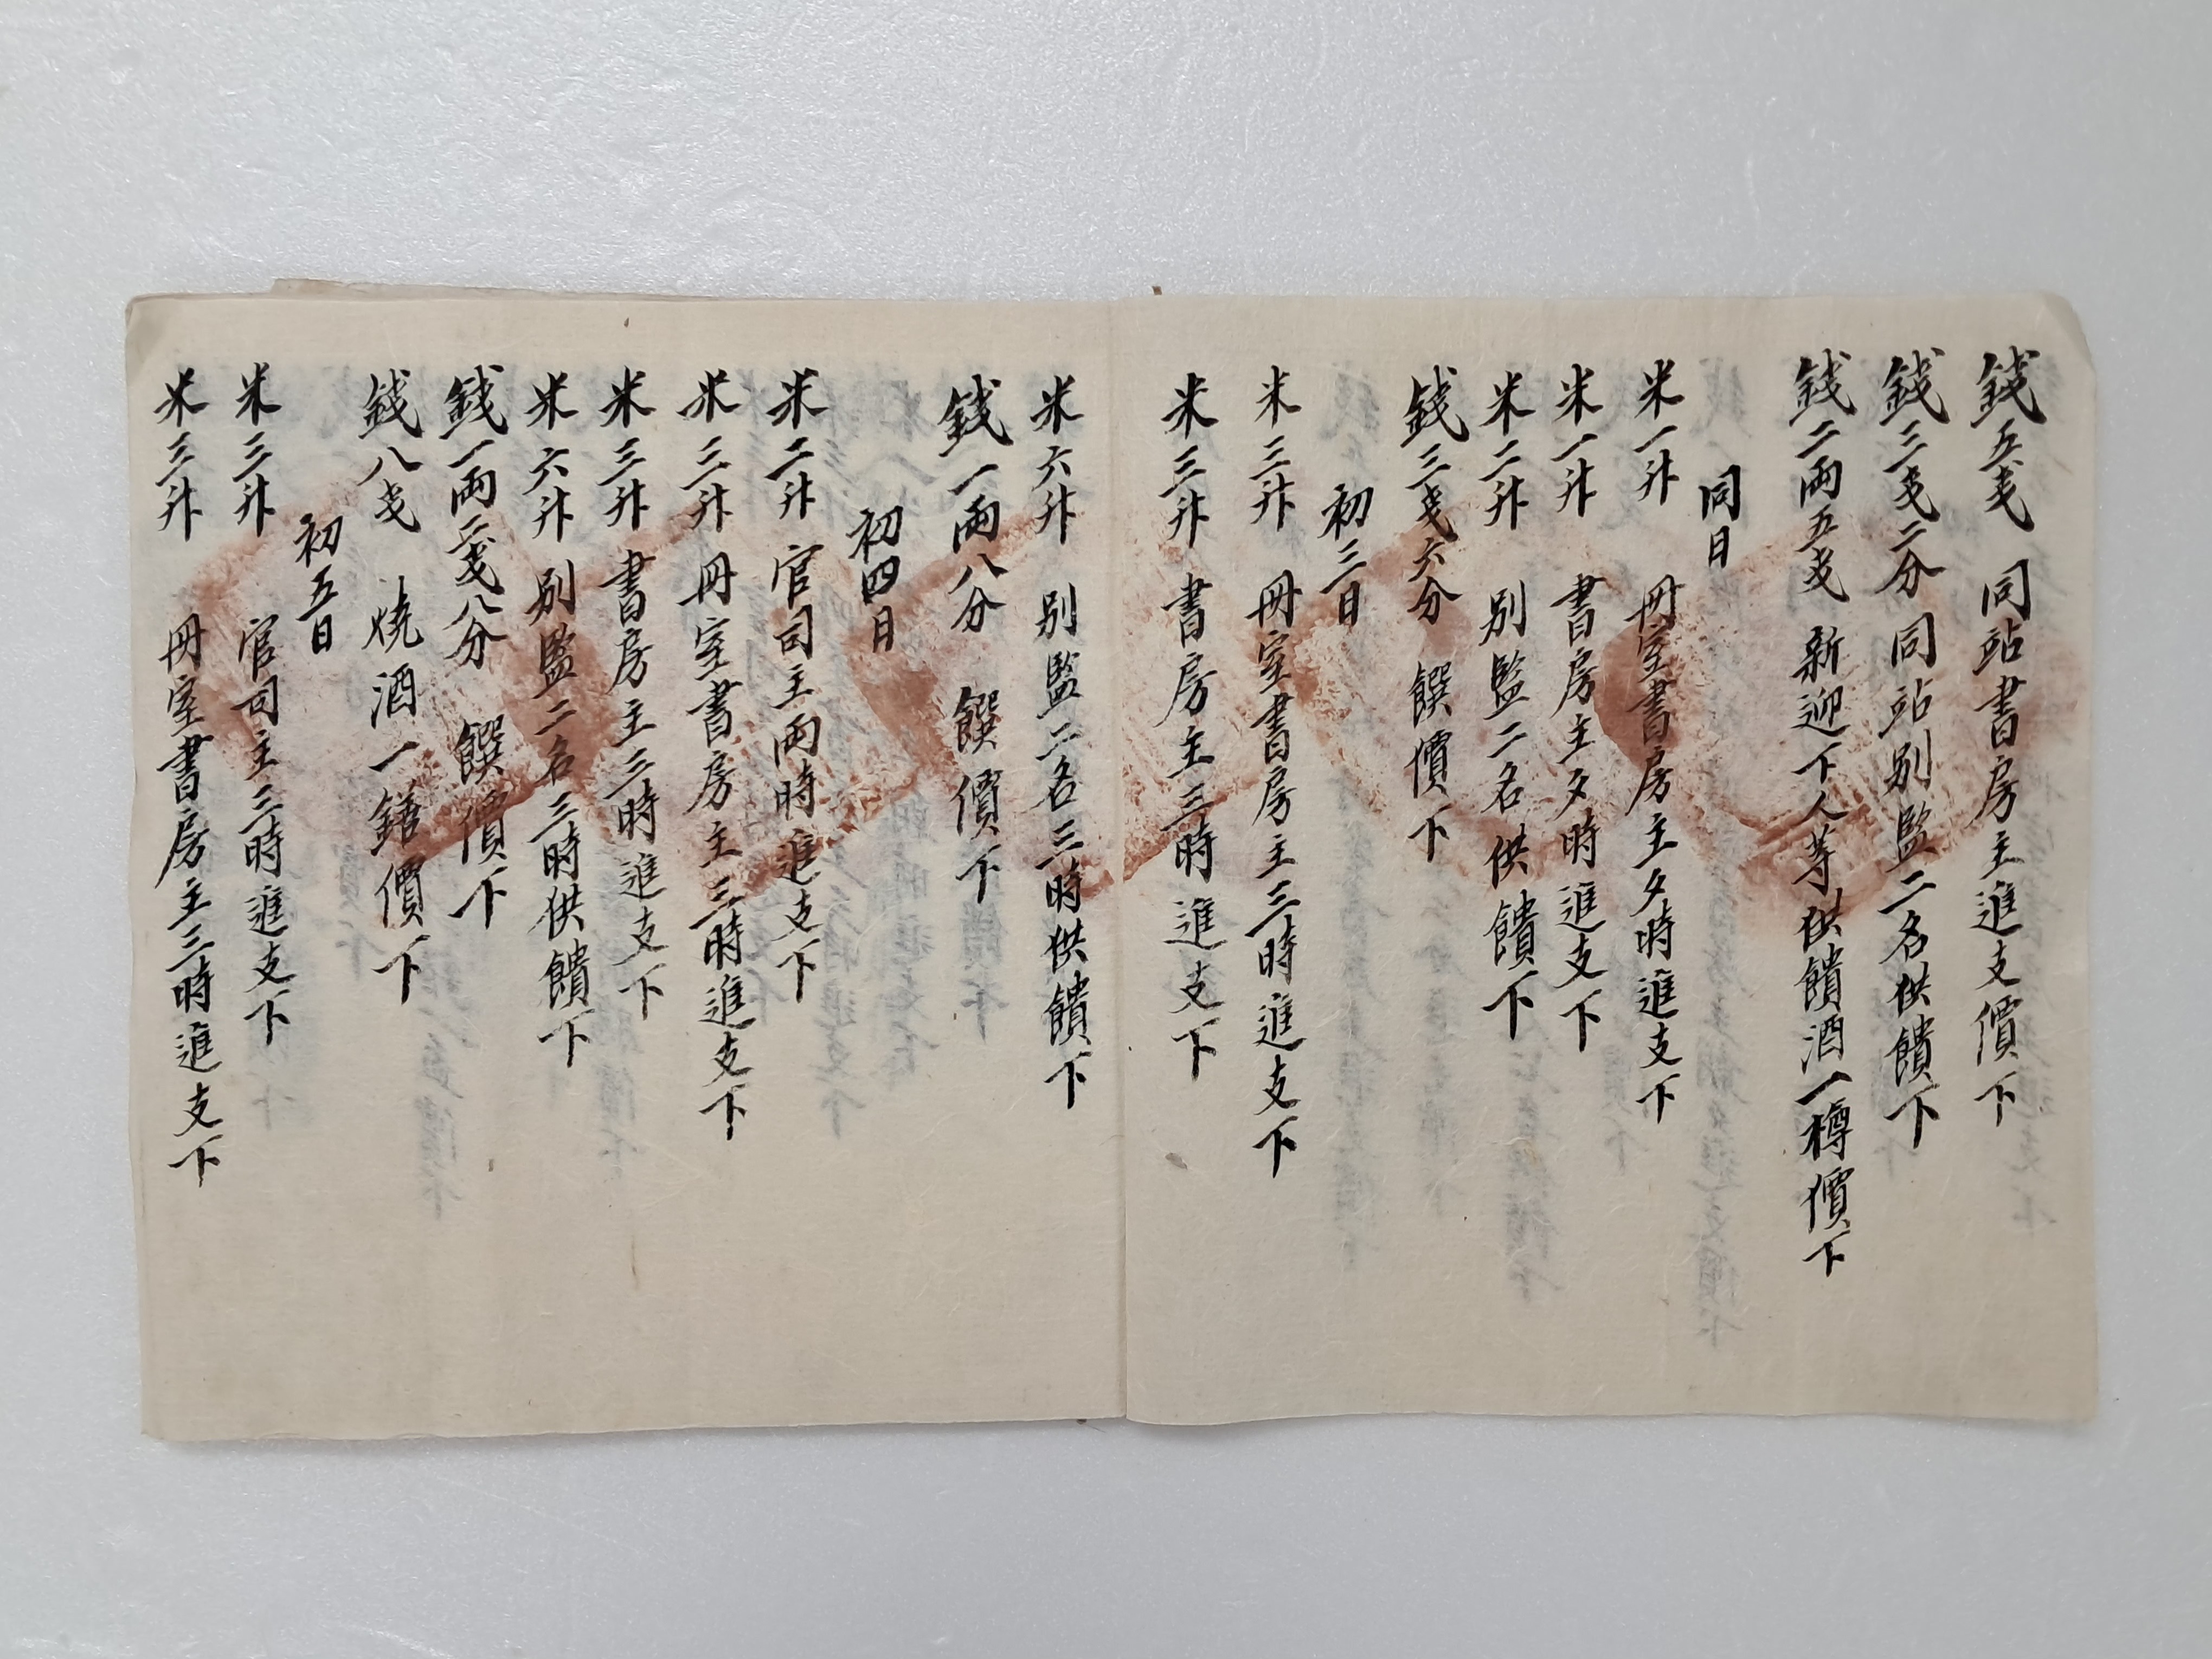 錢五戔 同站書房主進支價下
錢三戔二分 同站別監二名供饋下
錢二兩五戔 新迎下人等供饋酒一樽價下
同日
米一升 冊室書房主夕時進支下
米一升 書房主夕時進支下
米二升 別監二名供饋下
錢三戔六分 饌價下
初三日
米三升 冊室書房主三時進支下
米三升 書房主三時進支下
米六升 別監二名三時供饋下
錢一兩八分 饌價下
初四日
米二升 官司主兩時進支下
米三升 冊室書房主三時進支下
米三升 書房主三時進支下
米六升 別監二名三時供饋下
錢一兩二戔八分 饌價下
錢八戔 燒酒一鐥價下
初五日
米三升 官司主三時進支下
米三升 冊室書房主三時進支下